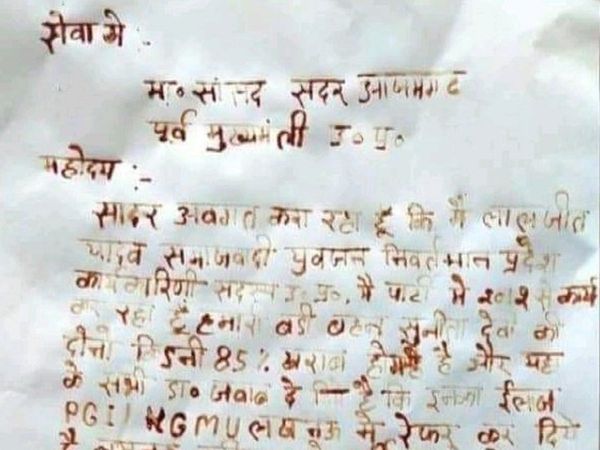 सेवा मे :-
मा० सांसद सदर आजमगढ
पूर्व मुख्यमंत्री उ० प्र०
महोदय :-
सादर अवगत करा रहा हूँ कि मैं लालजीत
यादव समाजवादी युवजन निवर्तमान प्रदेश
कार्यकारिणी सदस्य उ० प्र०, मै पार्टी मे २०१२ से कार्य
कर रहा हूँ हमारी बडी बहन सुनीता देवी की
दोनो किडनी 85% खराब हो गई है और यहा
के सभी डा० जवाब दे दिये है कि इनका ईलाज
PGI/ KGMU लखनऊ मे रेफर कर दिये